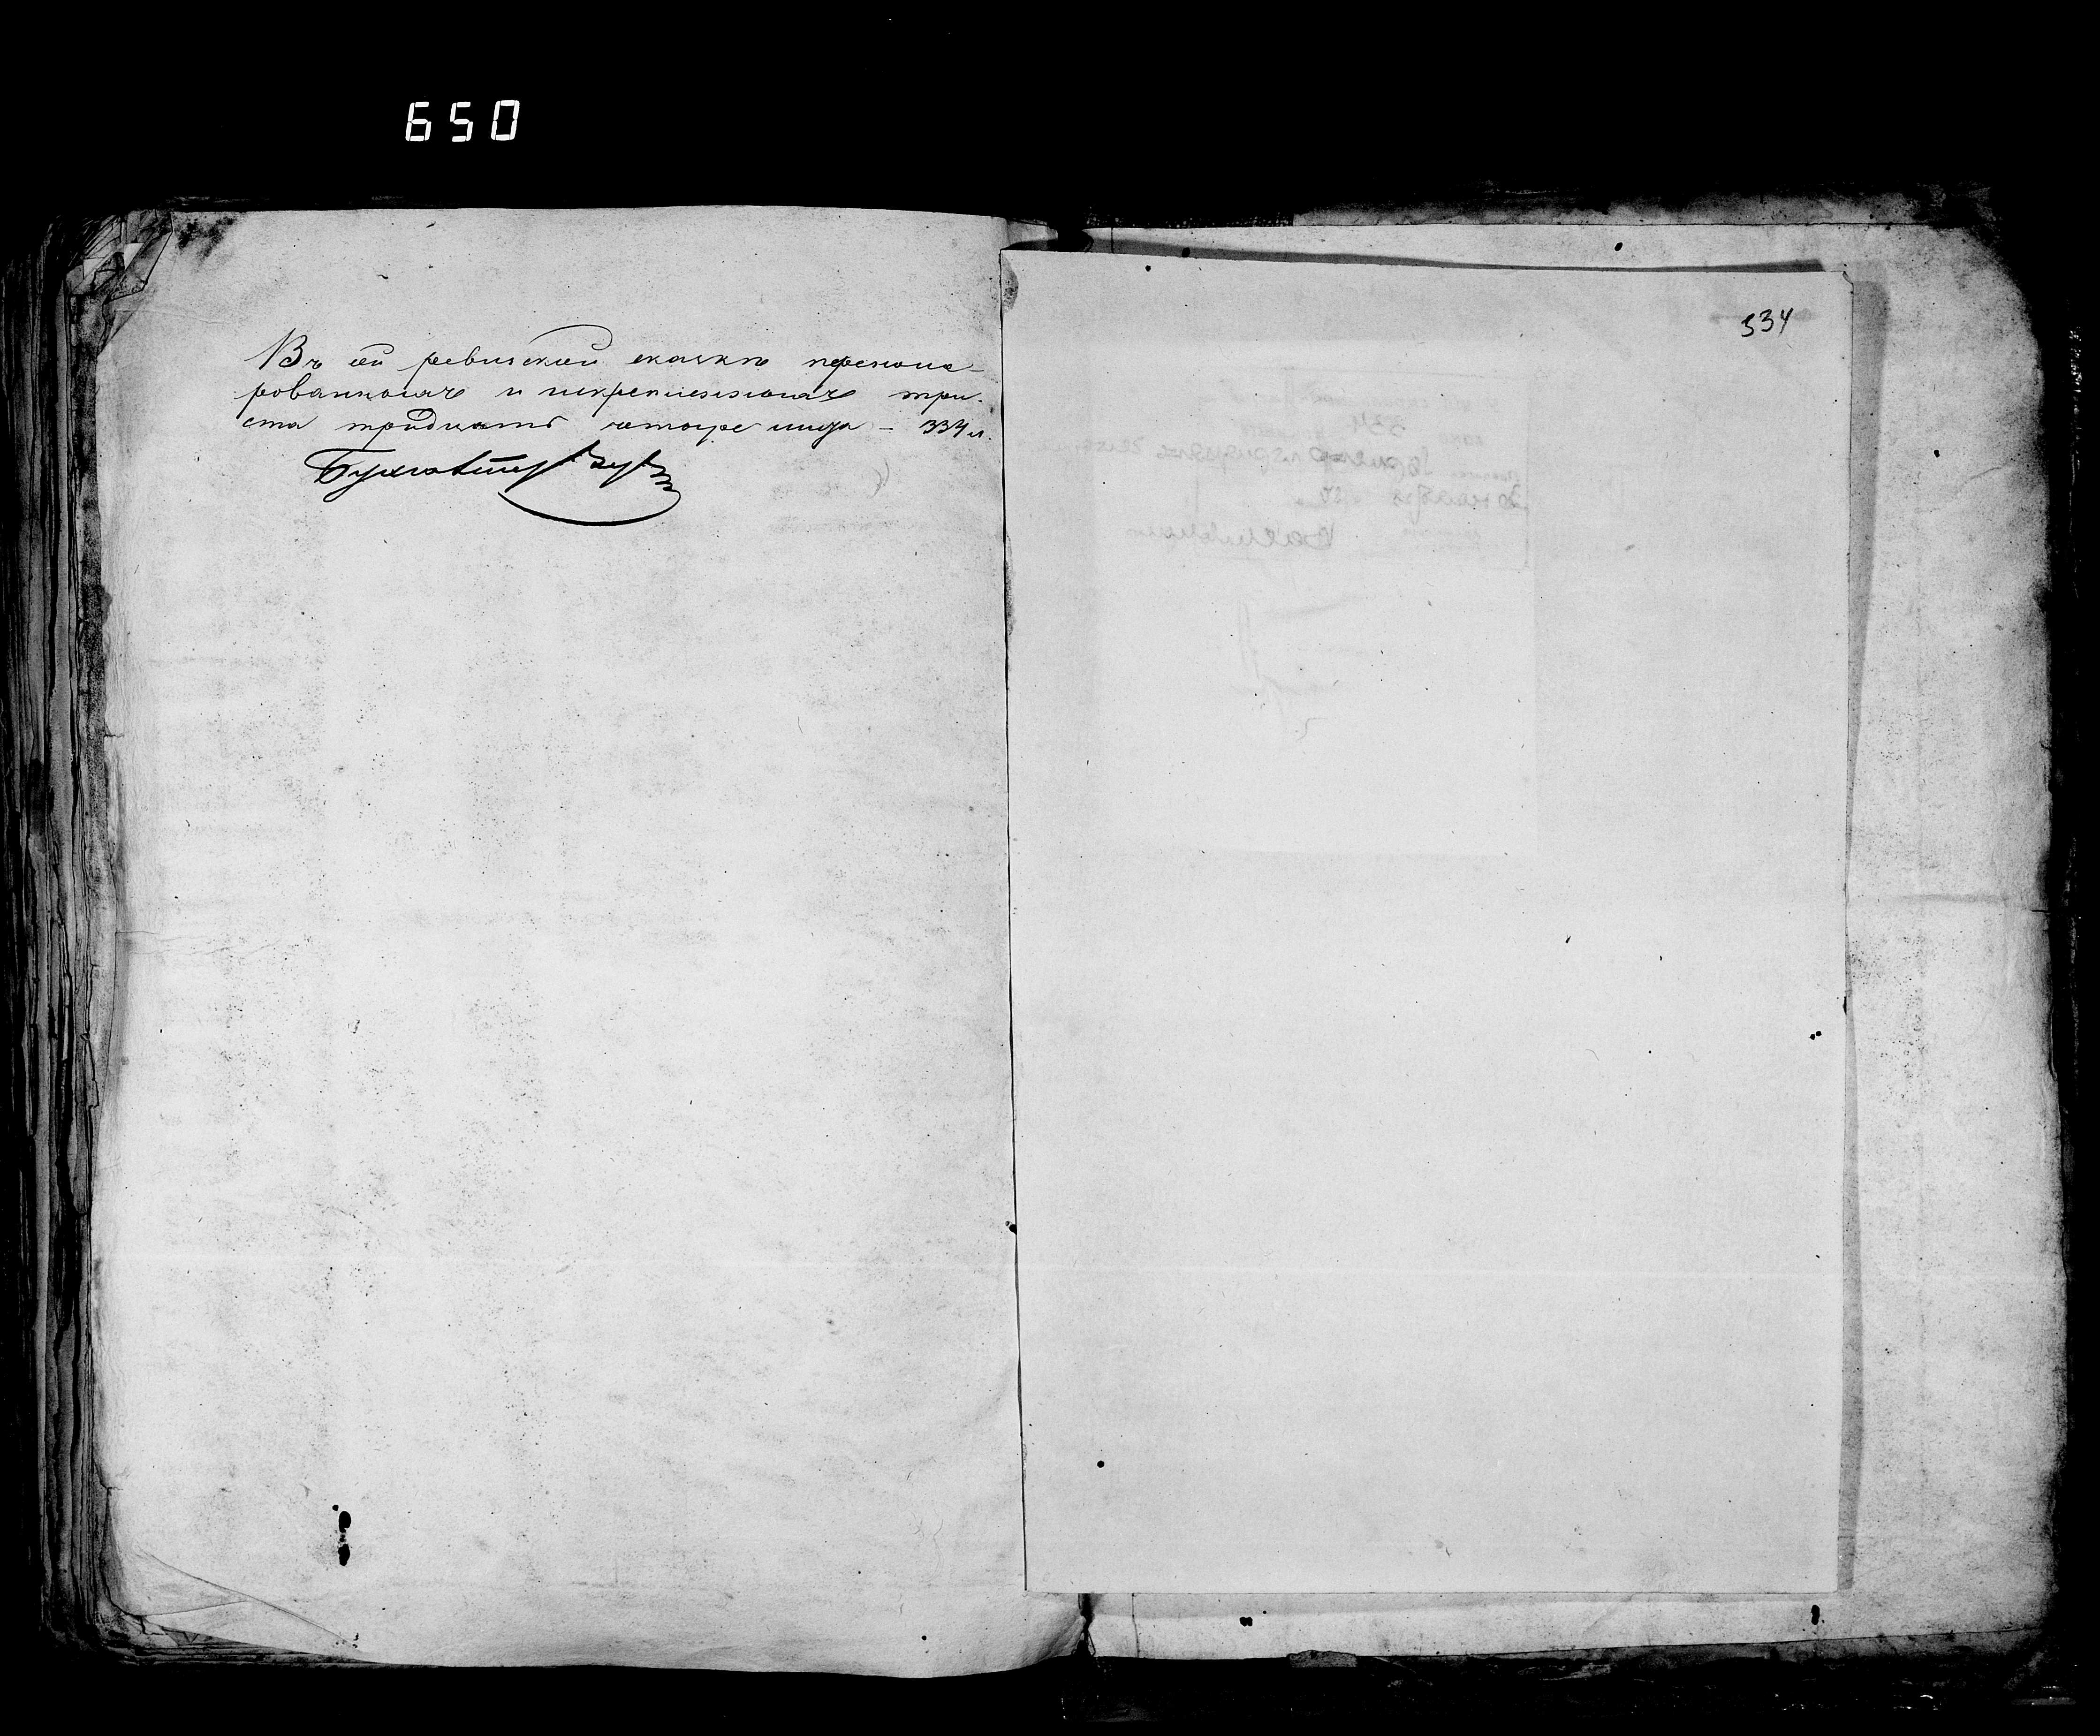 650
Въ сй ревизской сказкѣ перенуме-
рованныхъ и искрепленныхъ три-
ста тридцать четыре листа – 334 л.
Бухгалтеръ
334